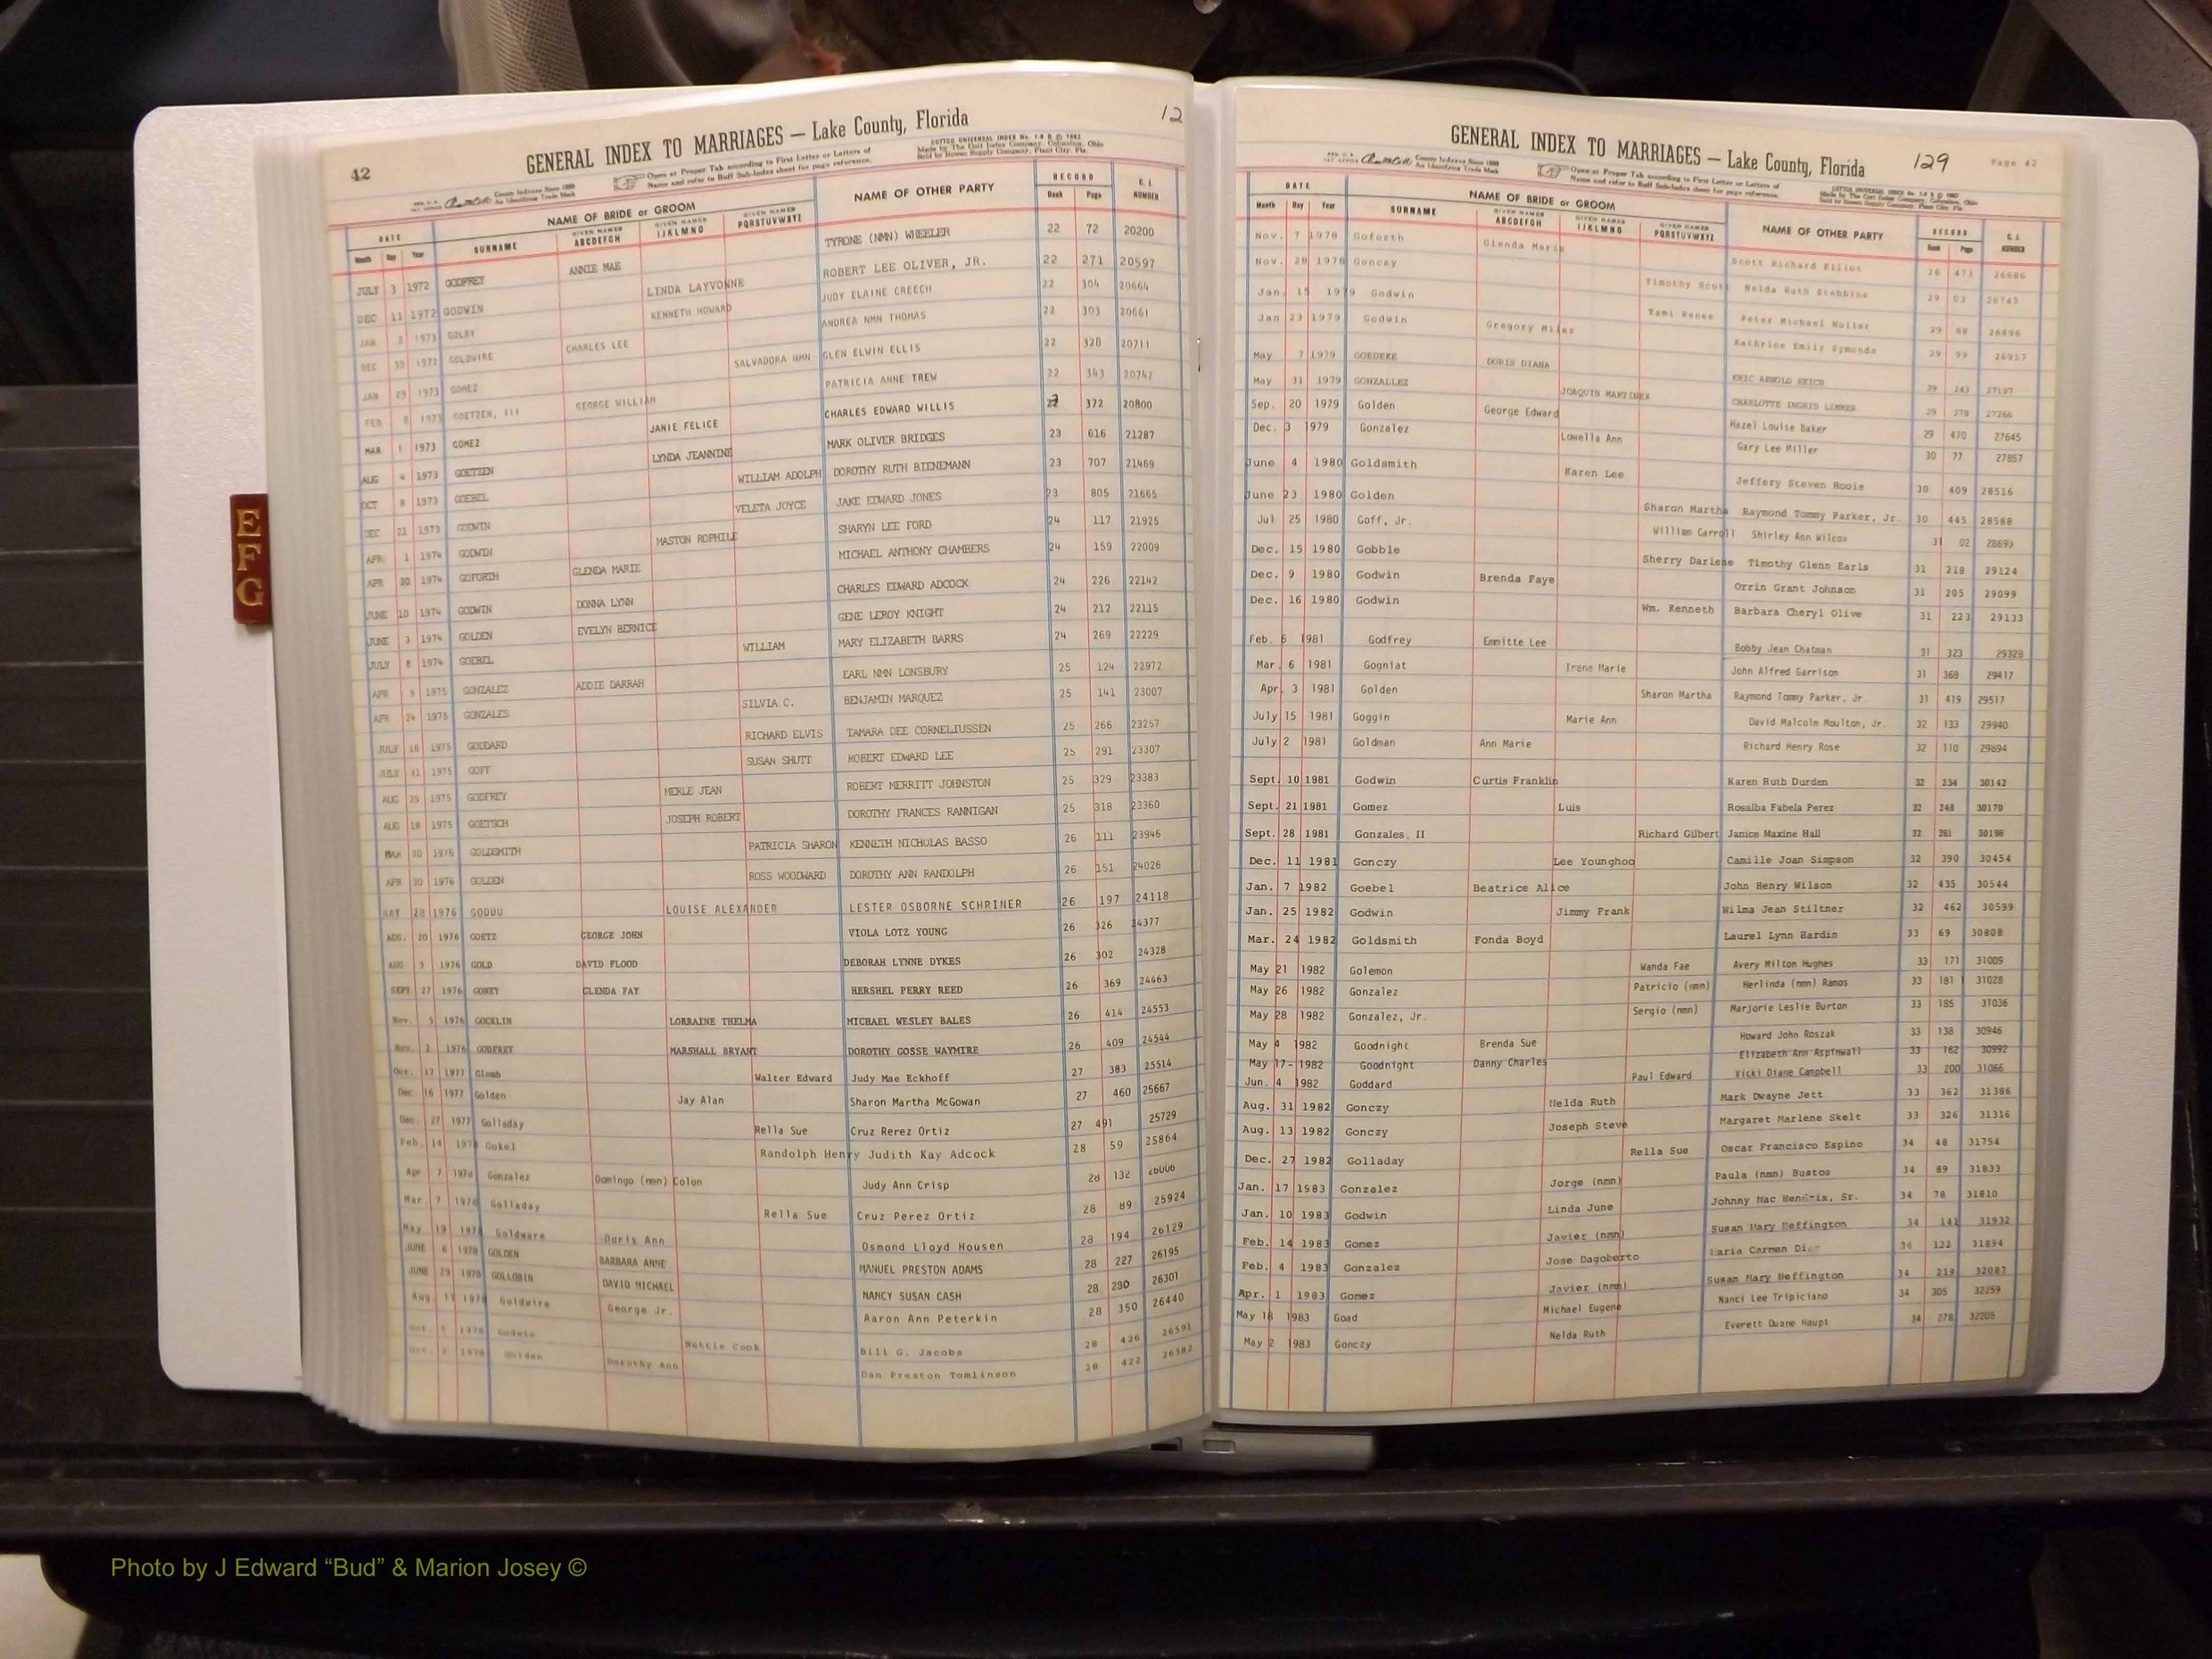 42
12
GENERAL INDEX TO MARRIAGES — Lake County, Florida
Open at Proper Tab according to First Letter or Letters of
Name and refer to Buff Sub-Index sheet for page reference.
DATE NAME OF BRIDE or GROOM NAME OF OTHER PARTY RECORD C. I. NUMBER
Month Day Year SURNAME GIVEN NAMES ABCDEFGH GIVEN NAMES IJKLMNO GIVEN NAMES PQRSTUVWXYZ Book Page
JULY 3 1972 GODFREY ANNIE MAE TYRONE (NMN) WHEELER 22 72 20200
DEC 11 1972 GODWIN LINDA LAYVONNE ROBERT LEE OLIVER, JR. 22 271 20597
JAN 2 1973 GOLBY KENNETH HOWARD JUDY ELAINE CREECH 22 304 20664
DEC 30 1972 GOLDWIRE CHARLES LEE ANDREA NMN THOMAS 22 303 20661
JAN 23 1973 GOMEZ SALVADORA NMN GLEN ELWIN ELLIS 22 328 20711
FEB 8 1973 GOETZEN, III GEORGE WILLIAM PATRICIA ANNE TREW 22 343 20742
MAR 1 1973 GOMEZ JANIE FELICE CHARLES EDWARD WILLIS 22 372 20800
AUG 4 1973 GOETZEN LYNDA JEANNINE MARK OLIVER BRIDGES 23 616 21287
OCT 8 1973 GOEBEL WILLIAM ADOLPH DOROTHY RUTH BIENEMANN 23 707 21469
DEC 21 1973 GODWIN VELETA JOYCE JAKE EDWARD JONES 23 805 21665
APR 1 1974 GODWIN MASTON ROPHILE SHARYN LEE FORD 24 117 21925
APR 30 1974 GOFORTH GLENDA MARIE MICHAEL ANTHONY CHAMBERS 24 159 22009
JUNE 10 1974 GODWIN DONNA LYNN CHARLES EDWARD ADCOCK 24 226 22142
JUNE 3 1974 GOLDEN EVELYN BERNICE GENE LEROY KNIGHT 24 212 22115
JULY 8 1974 GOEBEL WILLIAM MARY ELIZABETH BARRS 24 269 22229
APR 9 1975 GONZALEZ ADDIE DARRAH EARL NMN LONSBURY 25 124 22972
APR 24 1975 GONZALES SILVIA C. BENJAMIN MARQUEZ 25 141 23007
JULY 16 1975 GODDARD RICHARD ELVIS TAMARA DEE CORNELIUSSEN 25 266 23257
JULY 31 1975 GOFF SUSAN SHUTT ROBERT EDWARD LEE 25 291 23307
AUG 25 1975 GODFREY MERLE JEAN ROBERT MERRITT JOHNSTON 25 329 23383
AUG 18 1975 GOETSCH JOSEPH ROBERT DOROTHY FRANCES RANNIGAN 25 318 23360
MAR 30 1976 GOLDSMITH PATRICIA SHARON KENNETH NICHOLAS BASSO 26 111 23946
APR 30 1976 GOLDEN ROSS WOODWARD DOROTHY ANN RANDOLPH 26 151 24026
MAY 28 1976 GODDU LOUISE ALEXANDER LESTER OSBORNE SCHRINER 26 197 24118
AUG. 20 1976 GOETZ GEORGE JOHN VIOLA LOTZ YOUNG 26 326 24377
AUG 3 1976 GOLD DAVID FLOOD DEBORAH LYNNE DYKES 26 302 24328
SEPT 27 1976 GOMEY GLENDA FAY HERSHEL PERRY REED 26 369 24463
Nov. 5 1976 GOCKLIN LORRAINE THELMA MICHAEL WESLEY BALES 26 414 24553
Nov. 2 1976 GODFREY MARSHALL BRYANT DOROTHY GOSSE WAYMIRE 26 409 24544
Oct. 17 1977 Glomb Walter Edward Judy Mae Eckhoff 27 383 25514
Dec 16 1977 Golden Jay Alan Sharon Martha McGowan 27 460 25667
Dec. 27 1977 Golladay Rella Sue Cruz Rerez Ortiz 27 491 25729
Feb. 14 1978 Gokel Randolph Henry Judith Kay Adcock 28 59 25864
Apr 7 1978 Gonzalez Domingo (nmn) Colon Judy Ann Crisp 28 132 26006
Mar 7 1978 Golladay Rella Sue Cruz Perez Ortiz 28 89 25924
May 19 1978 Goldware Doris Ann Osmond Lloyd Housen 28 194 26129
JUNE 6 1978 GOLDEN BARBARA ANNE MANUEL PRESTON ADAMS 28 227 26195
JUNE 29 1978 GOLLOBIN DAVID MICHAEL NANCY SUSAN CASH 28 280 26301
Aug. 11 1978 Goldwire George Jr. Aaron Ann Peterkin 28 350 26440
Oct. 1978 Godwin Nettie Cook Bill G. Jacobs 28 426 26591
Oct. 1978 Golden Dorothy Ann Dan Preston Tomlinson 28 422 26582
GENERAL INDEX TO MARRIAGES — Lake County, Florida
129
Page 42
Open at Proper Tab according to First Letter or Letters of
Name and refer to Buff Sub-Index sheet for page reference.
DATE NAME OF BRIDE or GROOM NAME OF OTHER PARTY RECORD C. I. NUMBER
Month Day Year SURNAME GIVEN NAMES ABCDEFGH GIVEN NAMES IJKLMNO GIVEN NAMES PQRSTUVWXYZ Book Page
Nov. 7 1978 Goforth Glenda Marie Scott Richard Elliot 28 471 26686
Nov. 20 1978 Gonczy Timothy Scott Nelda Ruth Stebbins 29 03 26745
Jan. 15 1979 Godwin Tami Renee Peter Michael Muller 29 88 26896
Jan 23 1979 Godwin Gregory Miles Kathrine Emily Symonds 29 99 26917
May 7 1979 GOEDEKE DORIS DIANA ERIC ARNOLD REICH 29 243 27197
May 31 1979 GONZALLEZ JOAQUIN MARTINEX CHARLOTTE INGRID LIMMER 29 278 27266
Sep. 20 1979 Golden George Edward Hazel Louise Baker 29 470 27645
Dec. 3 1979 Gonzalez Lowella Ann Gary Lee Miller 30 77 27857
June 4 1980 Goldsmith Karen Lee Jeffery Steven Hooie 30 409 28516
June 23 1980 Golden Sharon Martha Raymond Tommy Parker, Jr. 30 445 28588
Jul 25 1980 Goff, Jr. William Carroll Shirley Ann Wilcox 31 02 28699
Dec. 15 1980 Gobble Sherry Darlene Timothy Glenn Earls 31 218 29124
Dec. 9 1980 Godwin Brenda Faye Orrin Grant Johnson 31 205 29099
Dec. 16 1980 Godwin Wm. Kenneth Barbara Cheryl Olive 31 223 29133
Feb. 6 1981 Godfrey Emmitte Lee Bobby Jean Chatman 31 323 29328
Mar. 6 1981 Gogniat Irene Marie John Alfred Garrison 31 368 29417
Apr. 3 1981 Golden Sharon Martha Raymond Tommy Parker, Jr 31 419 29517
July 15 1981 Goggin Marie Ann David Malcolm Moulton, Jr. 32 133 29940
July 2 1981 Goldman Ann Marie Richard Henry Rose 32 110 29894
Sept. 10 1981 Godwin Curtis Franklin Karen Ruth Durden 32 234 30142
Sept. 21 1981 Gomez Luis Rosalba Fabela Perez 32 248 30170
Sept. 28 1981 Gonzales, II Richard Gilbert Janice Maxine Hall 32 261 30196
Dec. 11 1981 Gonczy Lee Younghoo Camille Joan Simpson 32 390 30454
Jan. 7 1982 Goebel Beatrice Alice John Henry Wilson 32 435 30544
Jan. 25 1982 Godwin Jimmy Frank Wilma Jean Stiltner 32 462 30599
Mar. 24 1982 Goldsmith Fonda Boyd Laurel Lynn Hardin 33 69 30808
May 21 1982 Golemon Wanda Fae Avery Milton Hughes 33 171 31009
May 26 1982 Gonzalez Patricio (nmn) Herlinda (nmn) Ramos 33 181 31028
May 28 1982 Gonzalez, Jr. Sergio (nmn) Marjorie Leslie Burton 33 185 31036
May 4 1982 Goodnight Brenda Sue Howard John Roszak 33 138 30946
May 17- 1982 Goodnight Danny Charles Elizabeth Ann Aspinwall 33 162 30992
Jun. 4 1982 Goddard Paul Edward Vicki Diane Campbell 33 200 31066
Aug. 31 1982 Gonczy Nelda Ruth Mark Dwayne Jett 33 362 31386
Aug. 13 1982 Gonczy Joseph Steve Margaret Marlene Skelt 33 326 31316
Dec. 27 1982 Golladay Rella Sue Oscar Francisco Espino 34 48 31754
Jan. 17 1583 Gonzalez Jorge (nmn) Paula (nmn) Bustos 34 89 31833
Jan. 10 1983 Godwin Linda June Johnny Mac Hendrix, Sr. 34 78 31810
Feb. 14 1983 Gomez Javier (nmn) Susan Mary Heffington 34 141 31932
Feb. 4 1983 Gonzalez Jose Dagoberto Maria Carmen 34 122 31894
Apr. 1 1983 Gomez Javier (nmn) Susan Mary Heffington 34 219 32087
May 18 1983 Goad Michael Eugene Nanci Lee Tripiciano 34 305 32259
May 2 1983 Gonczy Nelda Ruth Everett Duane Haupt 34 278 32205
E
F
G
Photo by J Edward “Bud” & Marion Josey ©